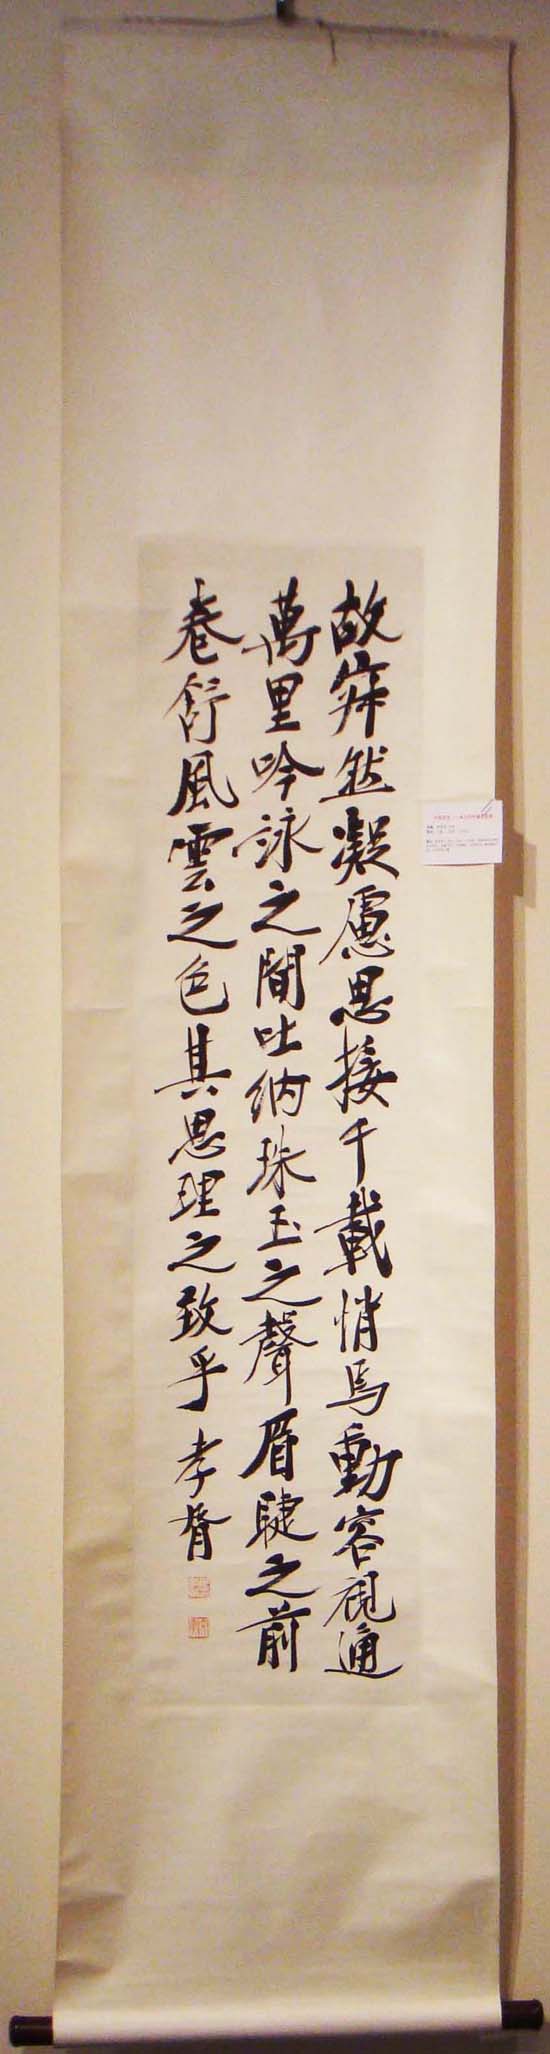 故寂然凝慮思接千載悄焉動容視通
萬里吟詠之間吐納珠玉之聲眉睫之前
卷舒風雲之色其思理之致乎 孝胥